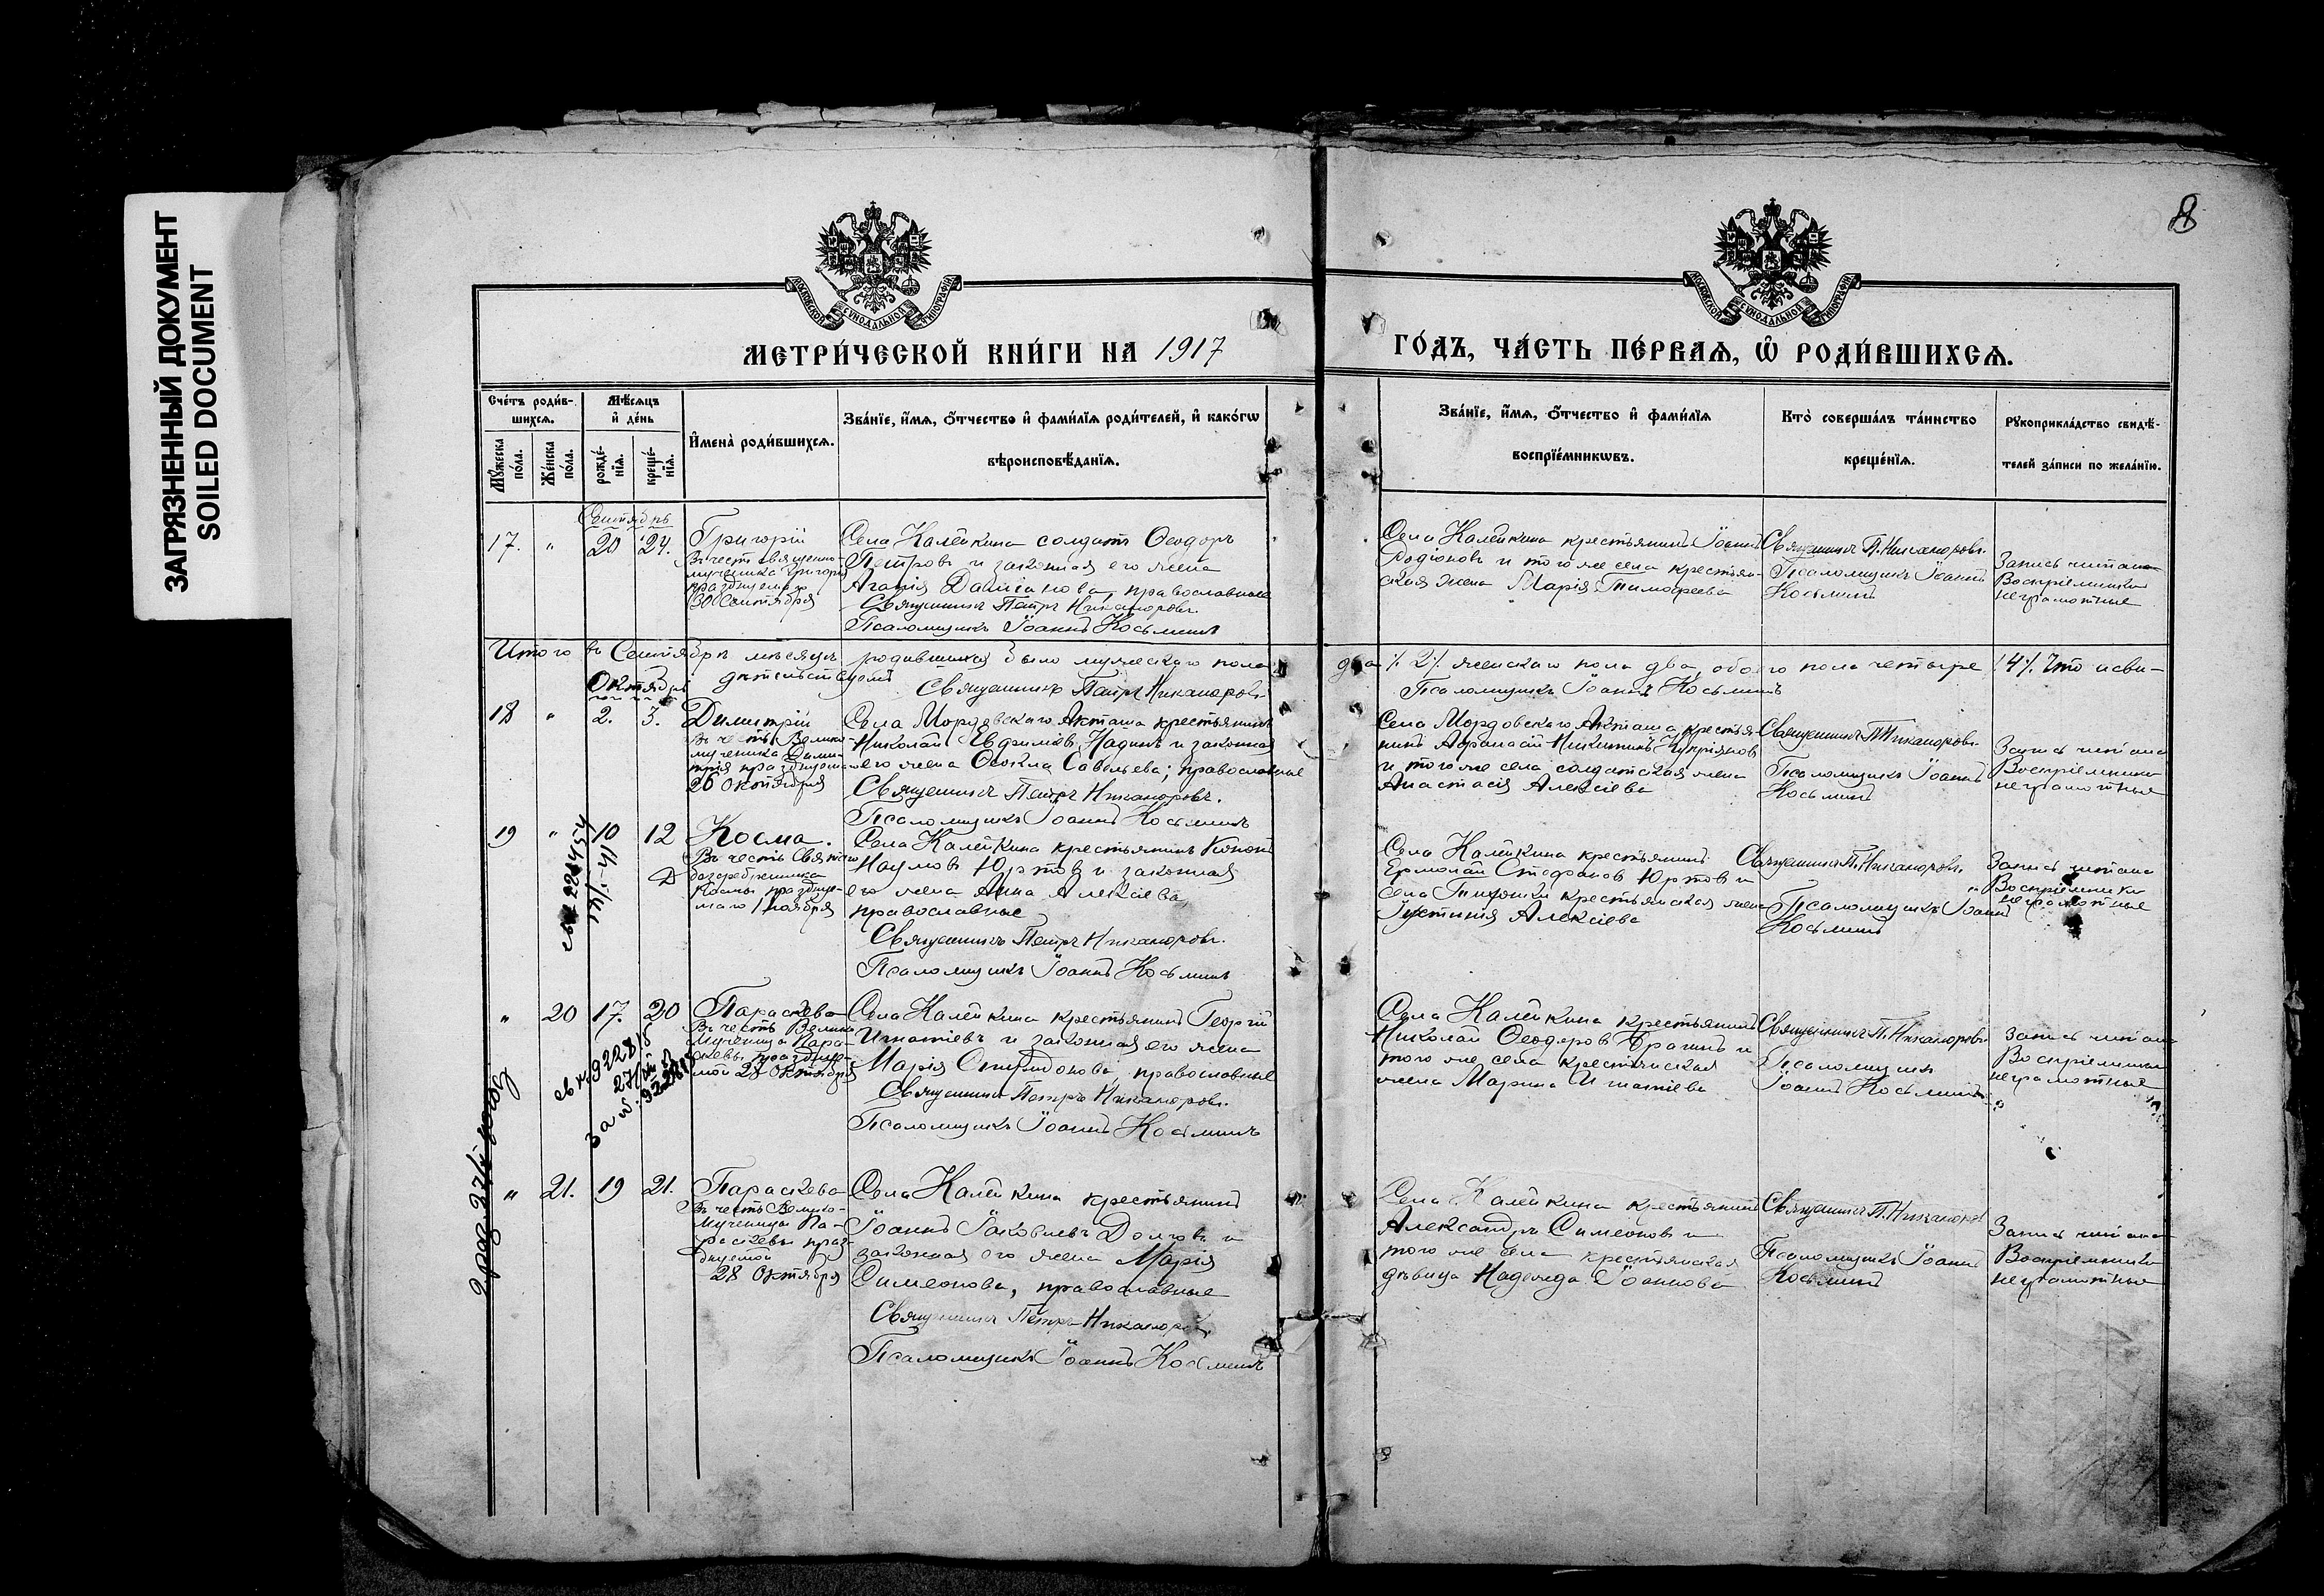 ЗАГРЯЗНЕННЫЙ ДОКУМЕНТ
SOILED DOCUMENT
8
МОСКОВСКОЙ СѴНОДАЛЬНОЙ ТИПОГРАФІИ
МОСКОВСКОЙ СѴНОДАЛЬНОЙ ТИПОГРАФІИ
МЕТРИ́ЧЕСКОЙ КНИ́ГИ НА 1917
ГО́ДЪ, ЧА́СТЬ ПЕ́РВАѦ, Ѡ҆ РОДИ́ВШИХСѦ.
Сче́тъ роди́в-
шихсѧ.
Мꙋ́жеска по́ла.
Же́нска по́ла.
Мѣ́сѧцъ
и҆ де́нь
рожде́-
нїѧ.
креще́-
нїѧ.
И҆мена̀ роди́вшихсѧ.
Зва́нїе, и҆́мѧ, ѻ҆́тчество и҆ фами́лїѧ роди́телей, и҆ како́гѡ
вѣроисповѣ́данїѧ.
Зва́нїе, и҆́мѧ, ѻ҆́тчество и҆ фами́лїѧ
воспрїе́мникѡвъ.
Кто̀ соверша́лъ та́инство
креще́нїѧ.
Рꙋкоприкла́дство свидѣ́-
телей за́писи по жела́нїю.
Сентябрь
17. " 20 24.
Григорій
Въ честь священно-
мученика Григорія
празднуемаго
30 Сентября
Села Калейкина солдатъ Ѳеодоръ
Петровъ и законная его жена
Агаѳія Даміанова, православные
Священникъ Петръ Никаноровъ.
Псаломщикъ Іоаннъ Косьминъ
Села Калейкина крестьянинъ Іоаннъ
Родіоновъ и того же села крестьян-
ская жена Марія Тимоѳеева
Священникъ П. Никаноровъ.
Псаломщикъ Іоаннъ
Косьминъ
Запись читана
Воспріемники
неграмотные
Итого въ Сентябрѣ мѣсяцѣ родившихся было мужескаго пола два /2/ женскаго пола два, обоего пола четыре /4/. Что и сви-
дѣтельствуемъ Священникъ Петръ Никаноровъ
Псаломщикъ Іоаннъ Косьминъ
Октябрь
18 " 2. 3.
Димитрій
Въ честь Велико-
мученика Дими-
трія празднуемаго
26 Октября
Села Мордовскаго Акташа крестьянинъ
Николай Евѳиміевъ Надинъ и законная
его жена Ѳекла Савельева; православные
Священникъ Петръ Никаноровъ.
Псаломщикъ Іоаннъ Косьминъ
Села Мордовскаго Акташа крестья-
нинъ Аѳанасій Никитинъ
и того же села солдатская жена
Анастасія Алексіева
Священникъ П. Никаноровъ.
Псаломщикъ Іоаннъ
Косьминъ
Запись читана
Воспріемники
неграмотные
19 " 10 12
Косма.
Въ честь Святаго
безсребренника
Космы празднуе-
маго 1 ноября
Села Калейкина крестьянинъ Кононъ
Наумовъ Юртовъ и законная
его жена Анна Алексіева,
православные
Священникъ Петръ Никаноровъ.
Псаломщикъ Іоаннъ Косьминъ
Села Калейкина крестьянинъ
Ермолай Стефановъ Юртовъ и
села крестьянская жена
Іустинія Алексіева
Священникъ П. Никаноровъ.
Псаломщикъ Іоаннъ
Косьминъ
Запись читана
Воспріемники
неграмотные
" 20 17. 20
Параскева
Въ честь Велико-
мученицы Пара-
скевы празднуе-
мой 28 Октября
Села Калейкина крестьянинъ Георгій
Игнатіевъ и законная его жена
Марія Спиридонова православные
Священникъ Петръ Никаноровъ.
Псаломщикъ Іоаннъ Косьминъ
Села Калейкина крестьянинъ
Николай Ѳеодоровъ и
того же села крестьянская
жена Марина Игнатіева
Священникъ П. Никаноровъ
Псаломщикъ
Іоаннъ Косьминъ
Запись читана
Воспріемники
неграмотные
" 21. 19 21.
Параскева
Въ честь Велико-
мученицы Па-
раскевы праз-
днуемой
28 Октября
Села Калейкина крестьянинъ
Іоаннъ Іаковлевъ Долговъ и
законная его жена Марія
Симеонова, православные
Священникъ Петръ Никаноровъ.
Псаломщикъ Іоаннъ Косьминъ
Села Калейкина крестьянинъ
Александръ Симеоновъ и
того же села крестьянская
дѣвица Надежда Іоаннова
Священникъ П. Никаноровъ
Псаломщикъ Іоаннъ
Косьминъ
Запись читана
Воспріемники
неграмотные